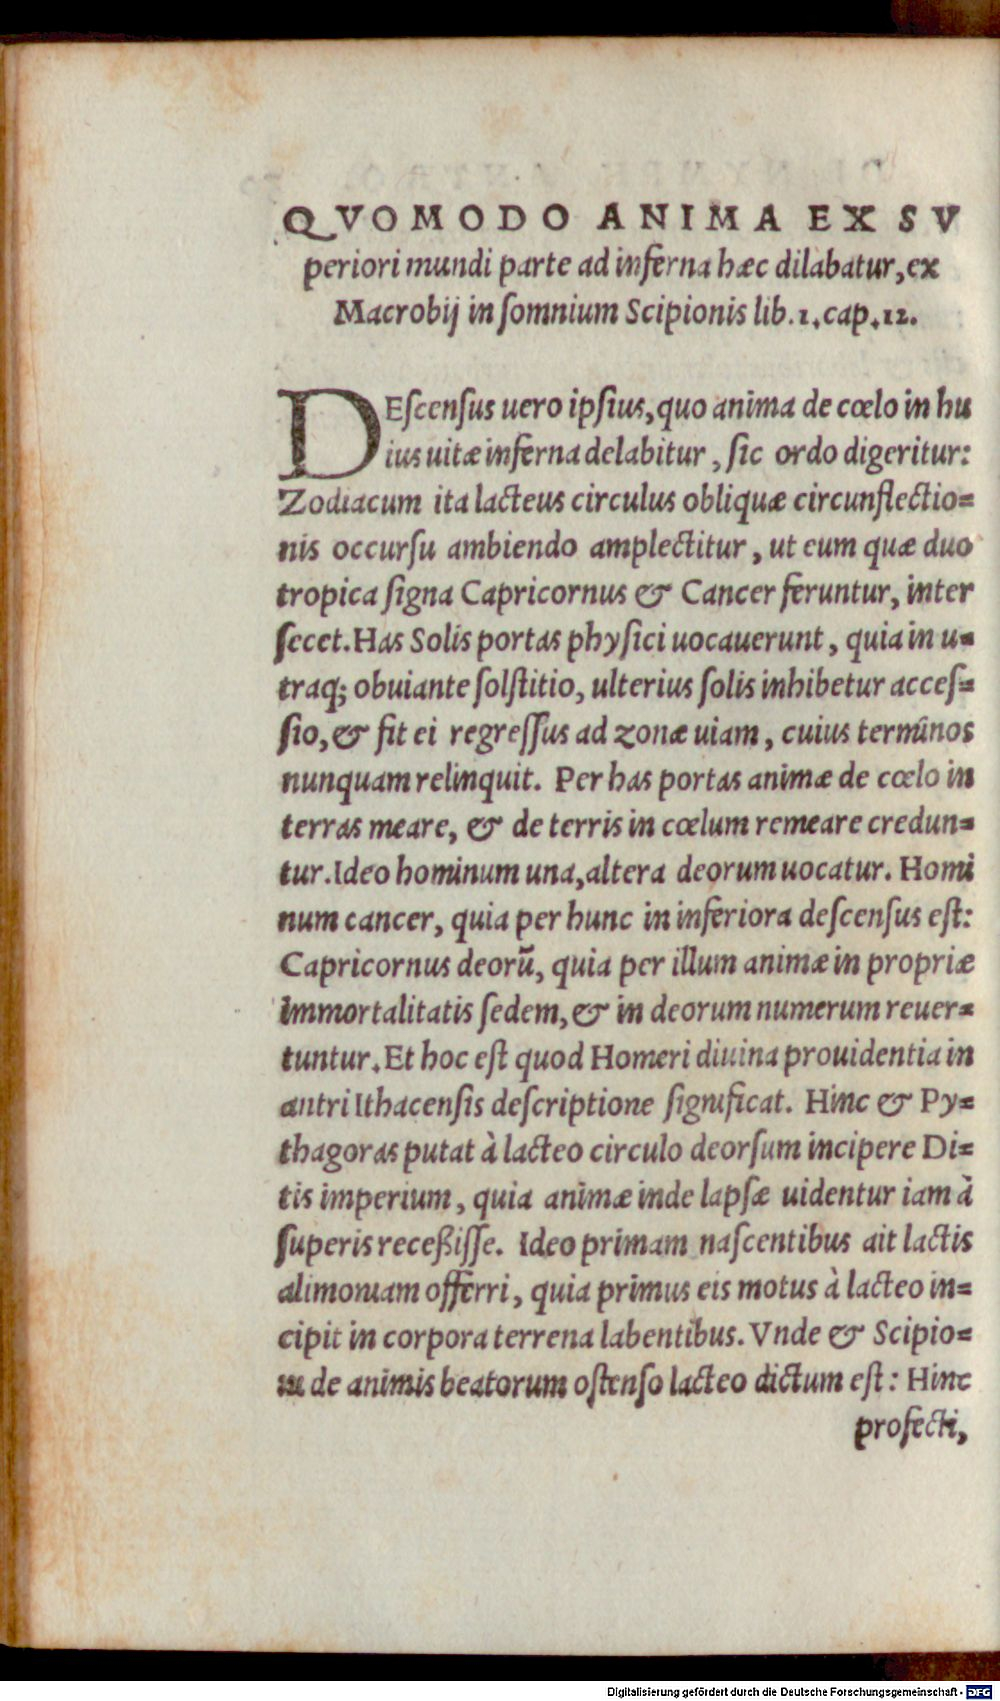 QVOMODO ANIMA EX SV
periori mundi parte ad inferna hæc dilabatur, ex
Macrobij in ſomnium Scipionis lib. 1. cap. 12.
DEſcenſus uero ipſius, quo anima de cœlo in hu
ius uitæ inferna delabitur, ſic ordo digeritur:
Zodiacum ita lacteus circulus obliquæ circunflectio=
nis occurſu ambiendo amplectitur, ut eum quæ duo
tropica ſigna Capricornus & Cancer feruntur, inter
ſecet. Has Solis portas phyſici uocauerunt, quia in u=
traq; obuiante ſolſtitio, ulterius ſolis inhibetur acceſ=
ſio, & fit ei regreſſus ad zonæ uiam, cuius terminos
nunquam relinquit. Per has portas animæ de cœlo in
terras meare, & de terris in cœlum remeare credun=
tur. Ideo hominum una, altera deorum uocatur. Homi
num cancer, quia per hunc in inferiora deſcenſus eſt:
Capricornus deorũ, quia per illum animæ in propriæ
immortalitatis ſedem, & in deorum numerum reuer=
tuntur. Et hoc eſt quod Homeri diuina prouidentia in
antri Ithacenſis deſcriptione ſignificat. Hinc & Py=
thagoras putat à lacteo circulo deorſum incipere Di=
tis imperium, quia animæ inde lapſæ uidentur iam à
ſuperis receßiſſe. Ideo primam naſcentibus ait lactis
alimoniam offerri, quia primus eis motus à lacteo in=
cipit in corpora terrena labentibus. Vnde & Scipio=
ni de animis beatorum oſtenſo lacteo dictum eſt: Hinc
profecti,
Digitalisierung gefördert durch die Deutsche Forschungsgemeinschaft - DFG